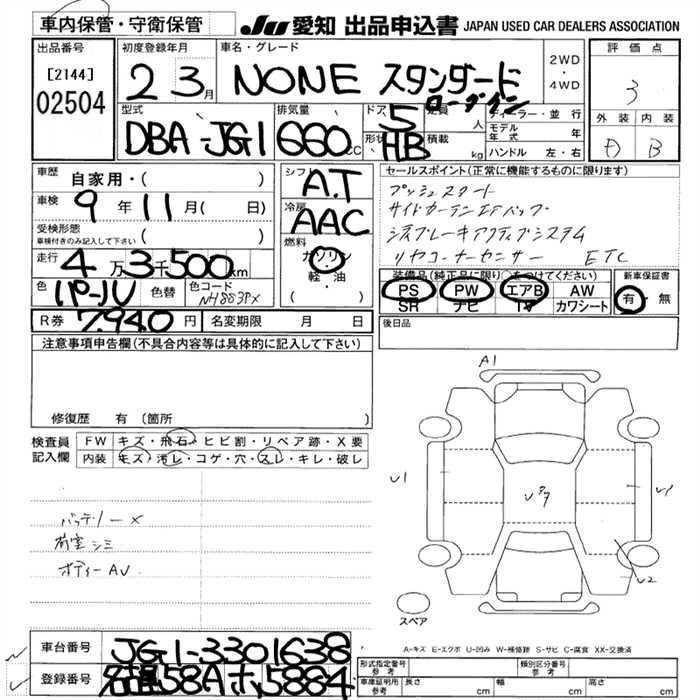 車内保管・守衛保管
JU 愛知 出品申込書 JAPAN USED CAR DEALERS ASSOCIATION
出品番号 初度登録年月 車名・グレード 2WD・4WD 評価点
[2144] 02504 2 3月 NONE スタンダード 3
ローダウン
外装 内装
型式 排気量 ドア 定員 人 ディーラー・並行
DBA-JG1 660cc 5 モデル年式 年
形状 HB 積載 kg ハンドル 左・右 B
車歴 自家用・( ) シフト A.T セールスポイント(正常に機能するものに限ります)
車検 9年11月( 日) 冷房 AAC プッシュスタート
受検形態 ( ) サイドカーテンエアバッグ
車検付きのみ記入して下さい 燃料 シティブレーキアクティブシステム
走行 4万3千500km ガソリン リヤコーナーセンサー ETC
軽・油
( )
装備品(純正品に限り○をつけてください) 新車保証書
色 色替 色コード NH883PX PS PW エアB AW 有・無
SR ナビ TV カワシート
R券 7,940円 名変期限 月 日 後日品
注意事項申告欄(不具合内容等は具体的に記入して下さい)
修復歴 有 (箇所
検査員記入欄 FW キズ・飛石・ヒビ割・リペア跡・X要
内装 キズ・汚レ・コゲ・穴・スレ・キレ・破レ
A1
U1
U1
U2
バッテリーX
荷室シミ
ボディーAU
スペア
A-キズ E-エクボ U-凹み W-補修跡 S-サビ C-腐食 XX-交換済
車台番号 JG1-3301638
登録番号 名古屋58Aホ5884
形式指定番号 参考 類別区分番号 参考
車庫証明用 参考 長さ cm 幅 cm 高さ cm